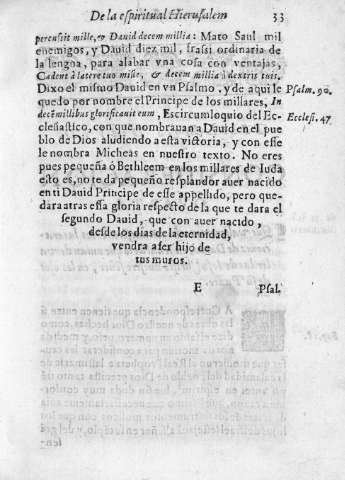 De la espiritual Hierusalem 33
percussit mille, & Dauid decem millia: Mato Saul mil
enemigos, y Dauid diez mil, frassi ordinaria de
la lengoa, para alabar vna cosa con ventajas,
Cadent à latere tuo mille, & decem millia à dextris tuis.
Dixo el mismo Dauid en vn Psalmo, y de aqui le Psalm. 90.
quedo por nombre el Principe de los millares, In
decē millibus glorificauit eum, Es circumloquio del Ec- Ecclesi. 47
clesiastico, con que nombrauan a Dauid en el pue
blo de Dios aludiendo a esta victoria, y con esse
le nombra Micheas en nuestro texto. No eres
pues pequeña ô Bethleem en los millares de Iuda
esto es, no te da pequeño resplandor auer nacido
en ti Dauid Principe de esse appellido, pero que-
dara atras essa gloria respecto de la que te dara el
segundo Dauid, que con auer nacido,
desde los dias de la eternidad,
vendra a ser hijo de
tus muros.
E Psal.